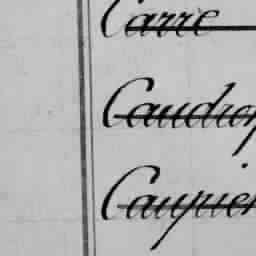 Carre
Caudro
Caupie